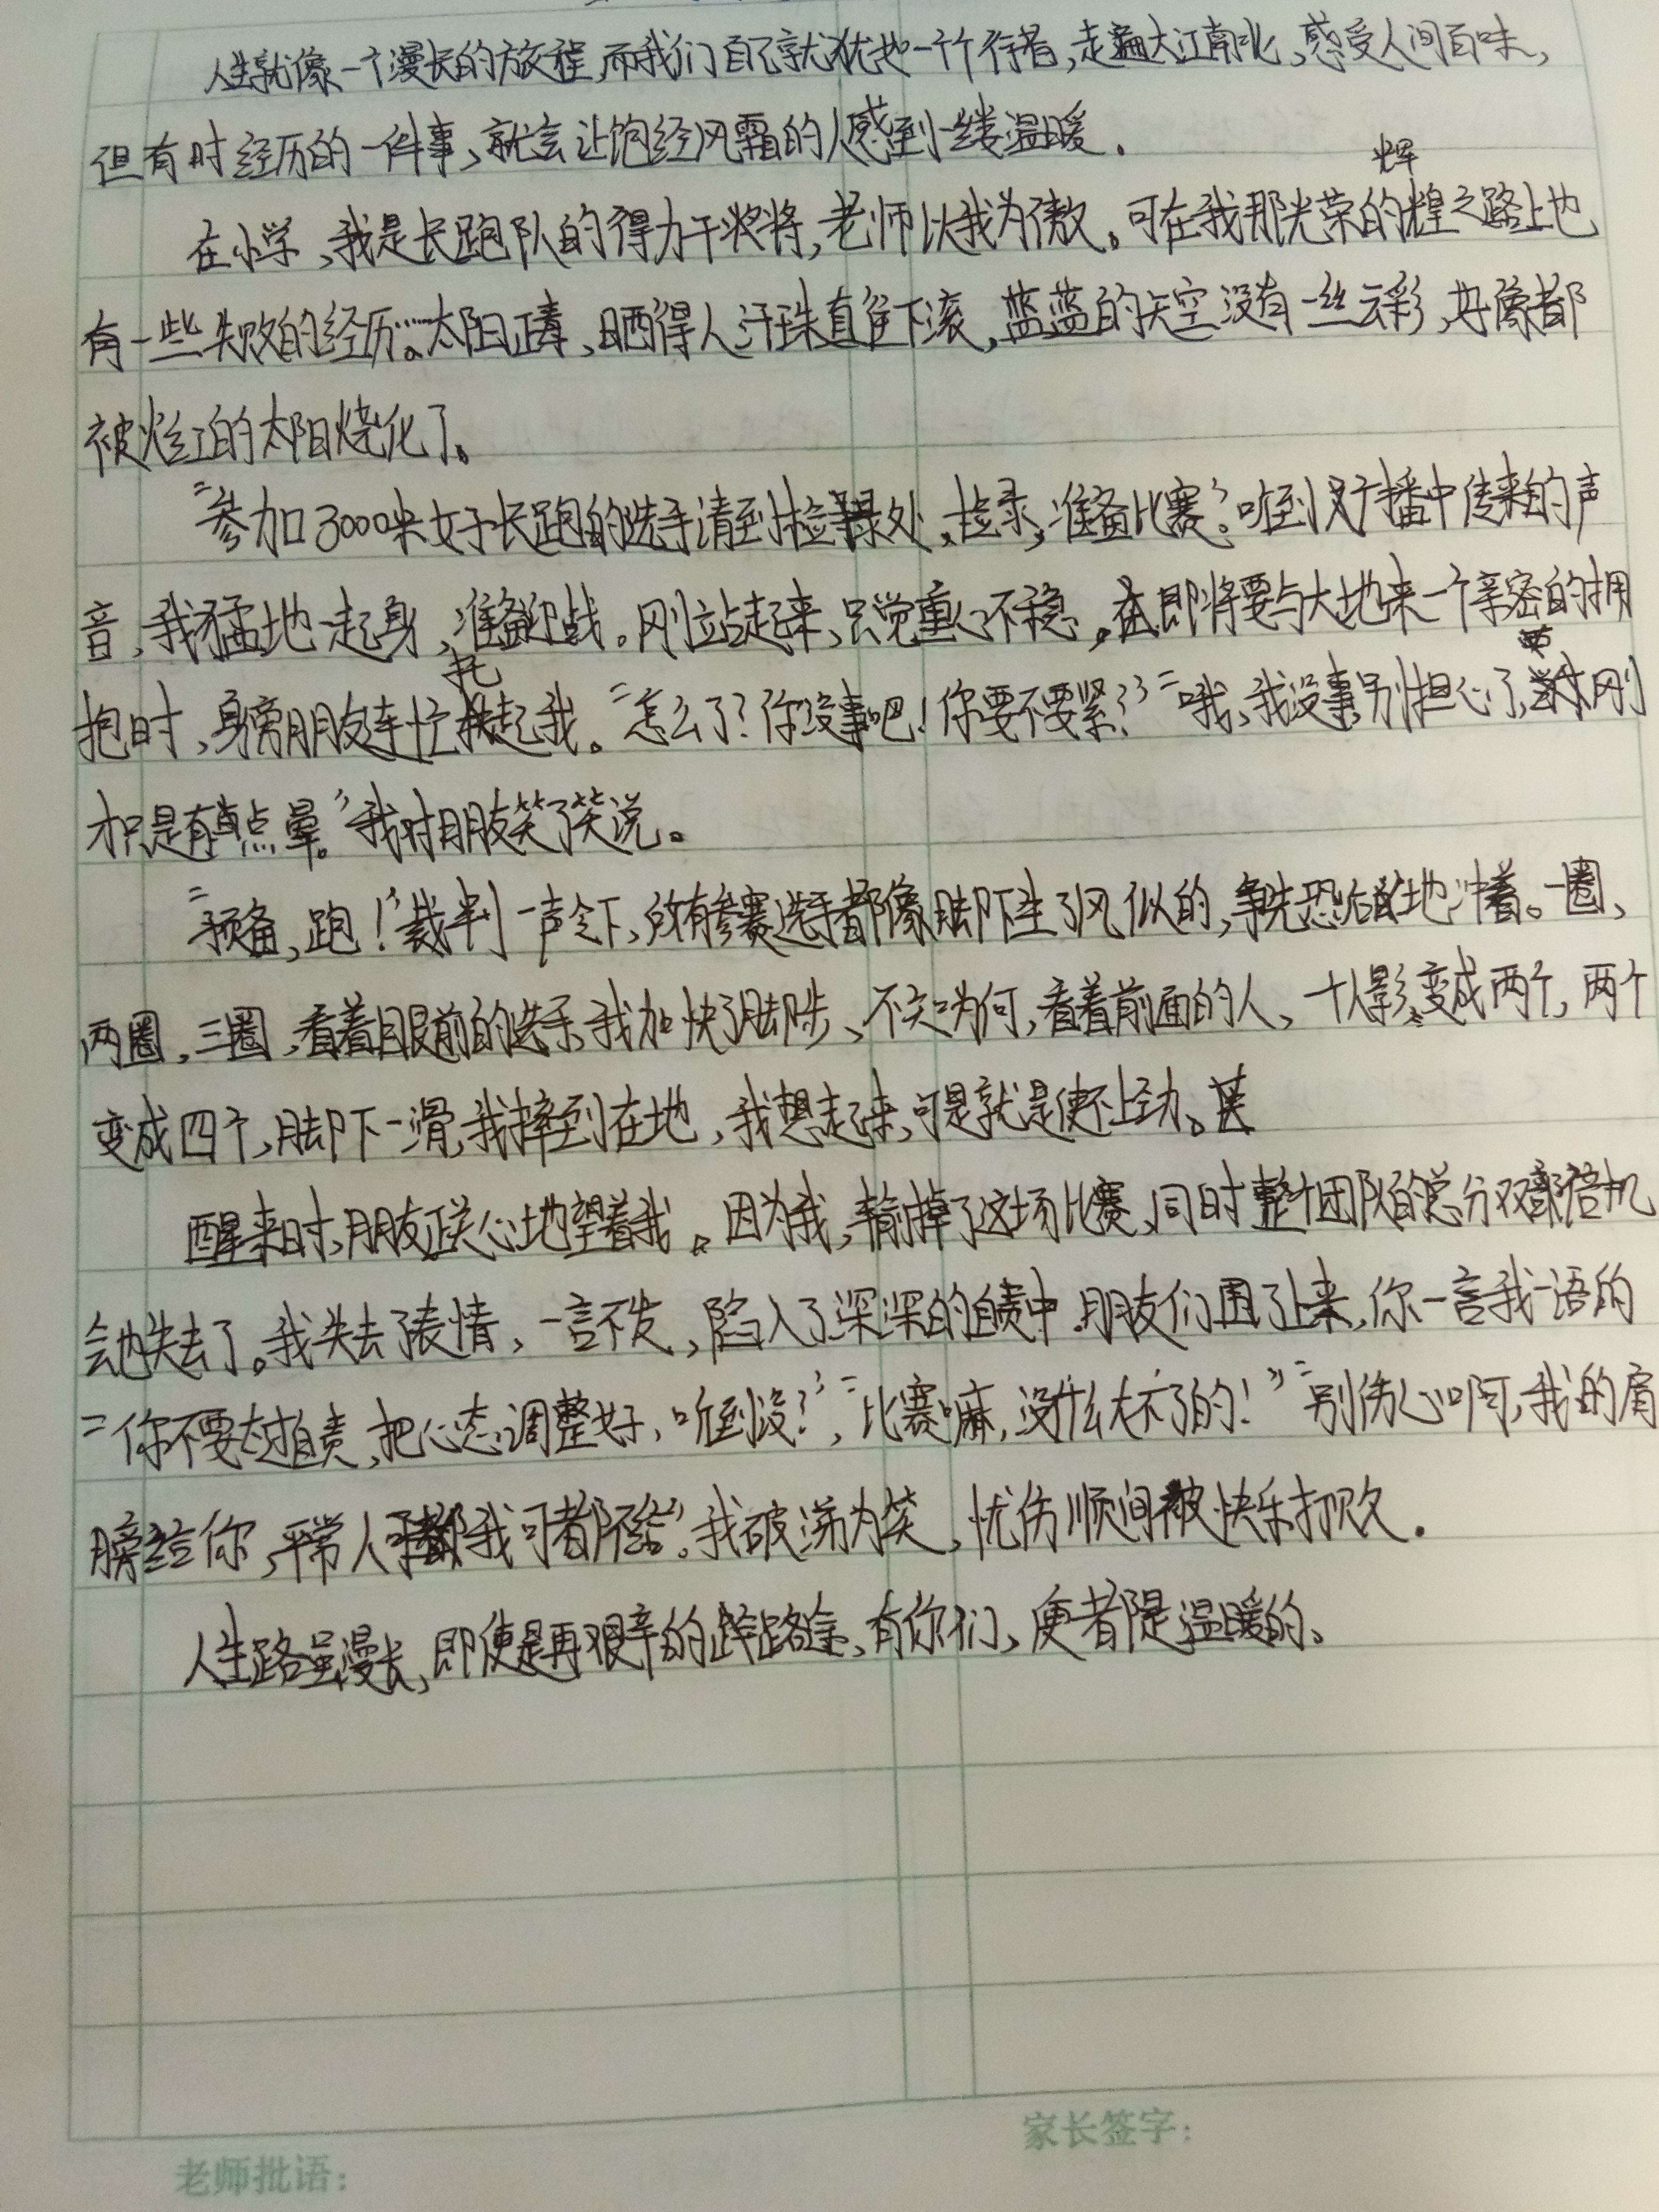 人生就像一个漫长的旅程,而我们自己就犹如一个行者,走遍大江南北、感受人间百味,
但有时经历的一件事、就会让饱经风霜的人感到一丝温暖.
在小学、我是长跑队的得力干将,老师以我为傲。可在我那光荣的辉煌之路上也
有一些失败的经历。……太阳正毒、晒得人汗珠直往下滚,蓝蓝的天空没有一丝云彩、好像都
被火红的太阳烧化了。
“参加3000米女子长跑的选手请到检录处,检录,准备比赛”。听到广播中传来的声
音,我猛地一起身、准备迎战。刚站起来、只觉重心不稳。在即将要与大地来一个亲密的拥
抱时、身旁朋友连忙托起我。“怎么了?你没事吧!你要不要紧?”“哦、我没事,别担心了,刚
才只是有点晕。”我对朋友笑了笑说。
“预备,跑!”裁判一声令下、所有参赛选手都像脚下生了风似的,争先恐后地冲着。一圈、
两圈,三圈,看着眼前的选手、我加快了脚步、不知为何,看着前面的人、一个人影变成两个,两个
变成四个,脚下一滑,我摔到在地,我想起来,可是就是使不上劲。
醒来时,朋友正关心地望着我。因为我,输掉了这场比赛、同时整个团队的总分双倍机
会也失去了。我失去了表情,一言不发,陷入了深深的自责中.朋友们围了上来,你一言我一语的
“你不要太过自责,把心态调整好,听到没?”,“比赛嘛,没什么大不了的!”“别伤心啊,我的肩
膀给你,平常人我可都不给”。我破涕为笑,忧伤顺间被快乐打败.
人生路虽漫长,即使是再艰辛的路途、有你们、便都是温暖的、
老师批语:
家长签字: